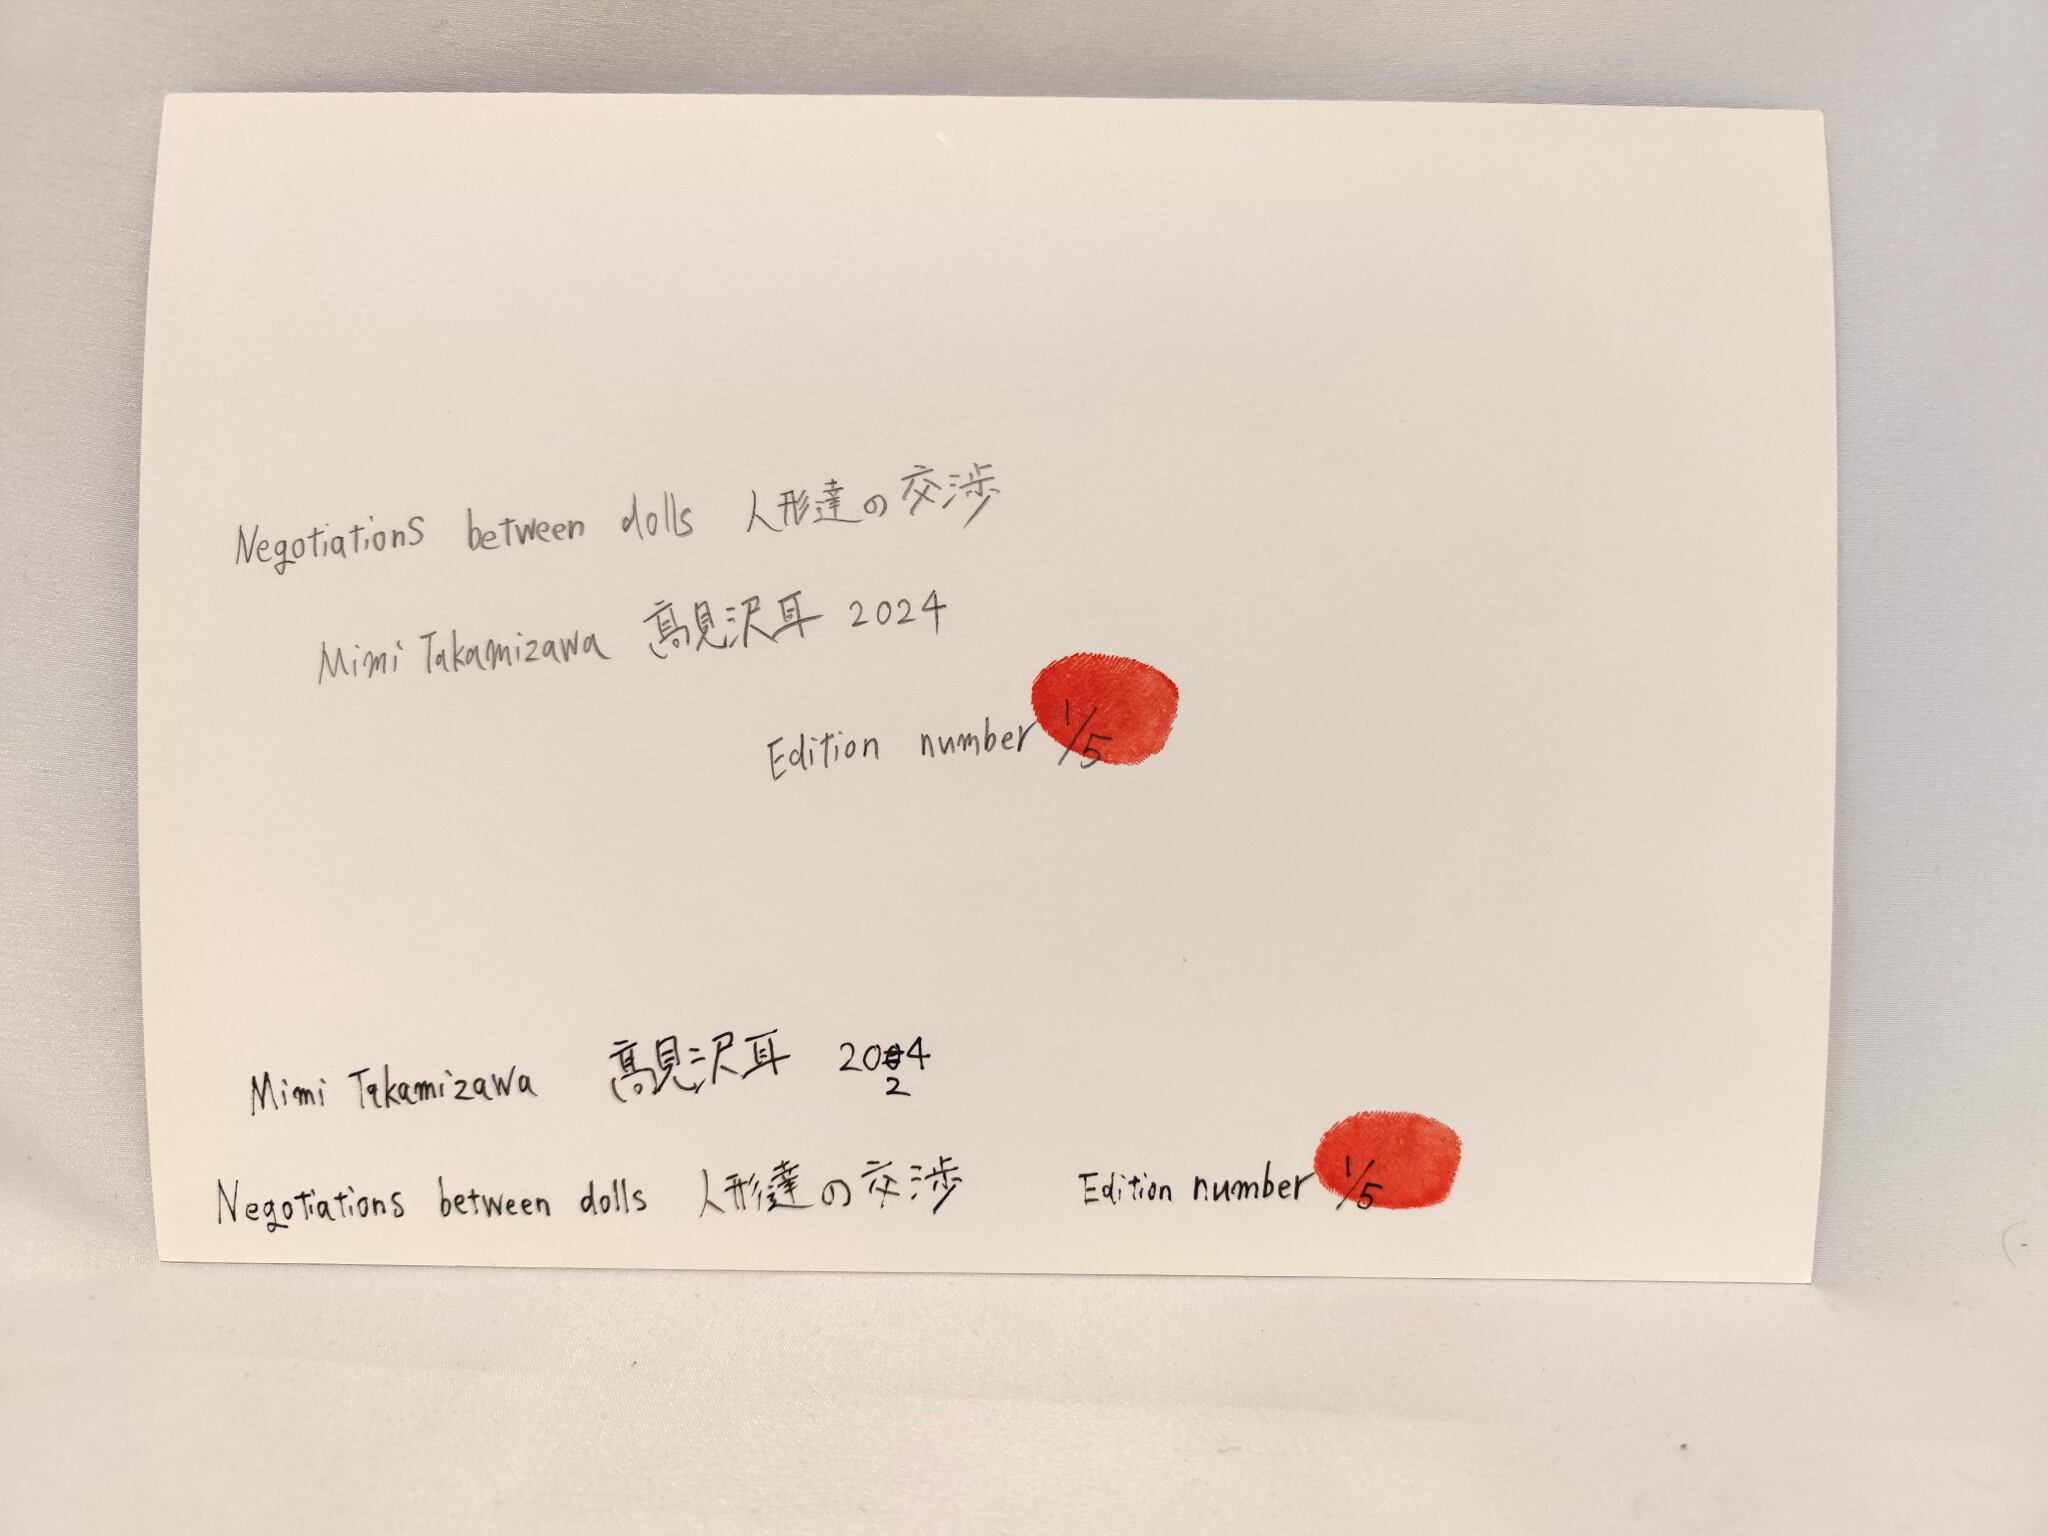 Negotiations between dolls 人形達の交渉
Mimi Takamizawa 高見沢耳 2024
Edition number 1/5
Mimi Takamizawa 高見沢耳 2024
Negotiations between dolls 人形達の交渉 Edition number 1/5